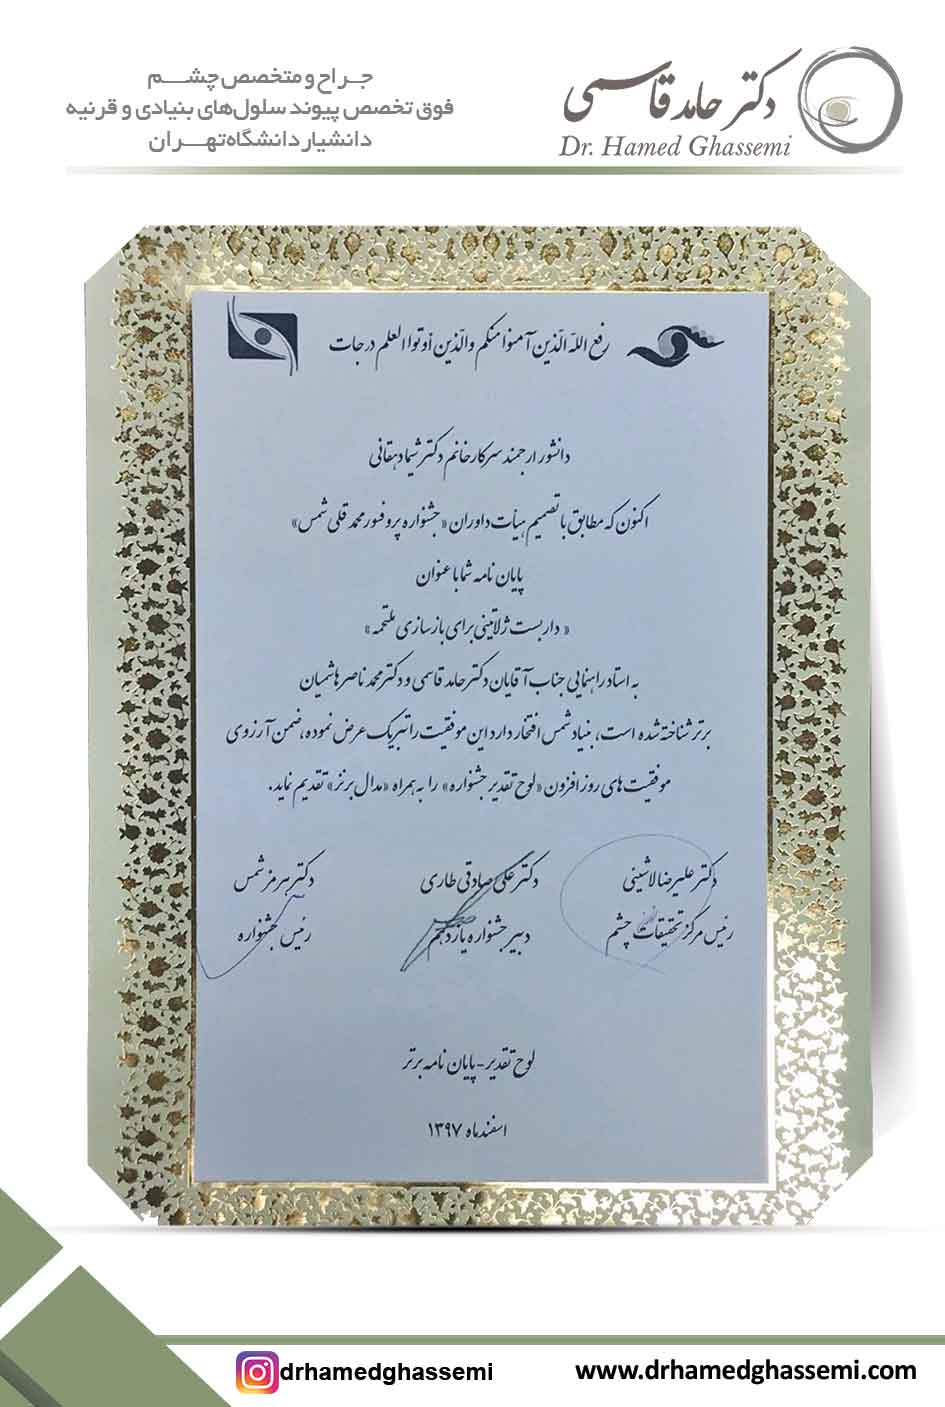 دکتر حامد قاسمی
Dr. Hamed Ghassemi
جراح و متخصص چشم
فوق تخصص پیوند سلول‌های بنیادی و قرنیه
دانشیار دانشگاه تهران
رفع الله الّذین آمنوا منکم والّذین أوتوا العلم درجات
دانشور ارجمند سرکار خانم دکتر شیما دهقانی
اکنون که مطابق با تصمیم هیأت داوران «جشنواره پروفسور محمد قلی شمس»
پایان نامه شما با عنوان
«داربست ژلاتینی برای بازسازی ملتحمه»
به استاد راهنمایی جناب آقایان دکتر حامد قاسمی و دکتر محمد ناصر هاشمیان
برتر شناخته شده است، بنیاد شمس افتخار دارد این موفقیت را تبریک عرض نموده، ضمن آرزوی
موفقیت های روز افزون «لوح تقدیر جشنواره» را به همراه «مدال برنز» تقدیم نماید.
دکتر علیرضا لاشینی
رئیس مرکز تحقیقات چشم
دکتر علی صادقی طاری
دبیر جشنواره یازدهم
دکتر هرمز شمس
رئیس جشنواره
لوح تقدیر - پایان نامه برتر
اسفند ماه ۱۳۹۷
drhamedghassemi
www.drhamedghassemi.com